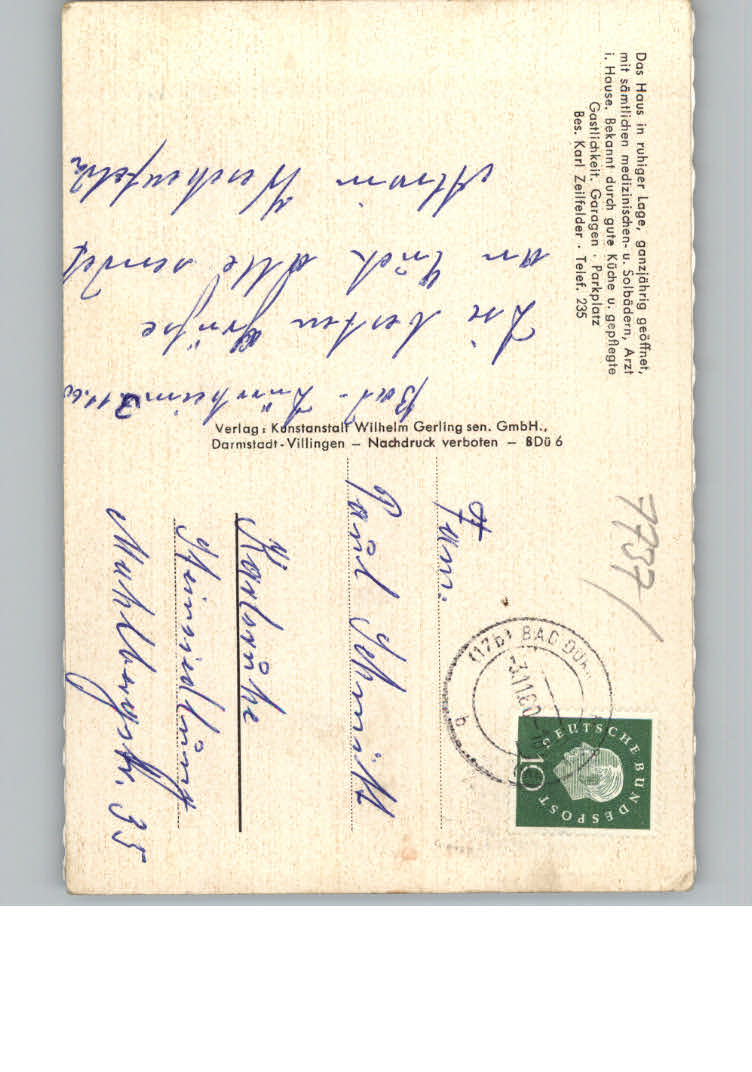 Das Haus in ruhiger Lage, ganzjährig geöffnet,
mit sämtlichen medizinischen- u. Solbädern, Arzt
i. Hause. Bekannt durch gute Küche u. gepflegte
Gastlichkeit. Garagen · Parkplatz
Bes. Karl Zeilfelder · Telef. 235
Bad-Dürrheim 3.11.60
Die besten Grüße
an Euch alle sendet
Verlag: Kunstanstalt Wilhelm Gerling sen. GmbH.,
Darmstadt-Villingen — Nachdruck verboten — BDü 6
7737/
(17b) BAD DÜR
3.11.60
b
DEUTSCHE BUNDESPOST
10
Fam.
Paul Schmitt
Karlsruhe
Heimsiedlung
Muhlbergstr. 35